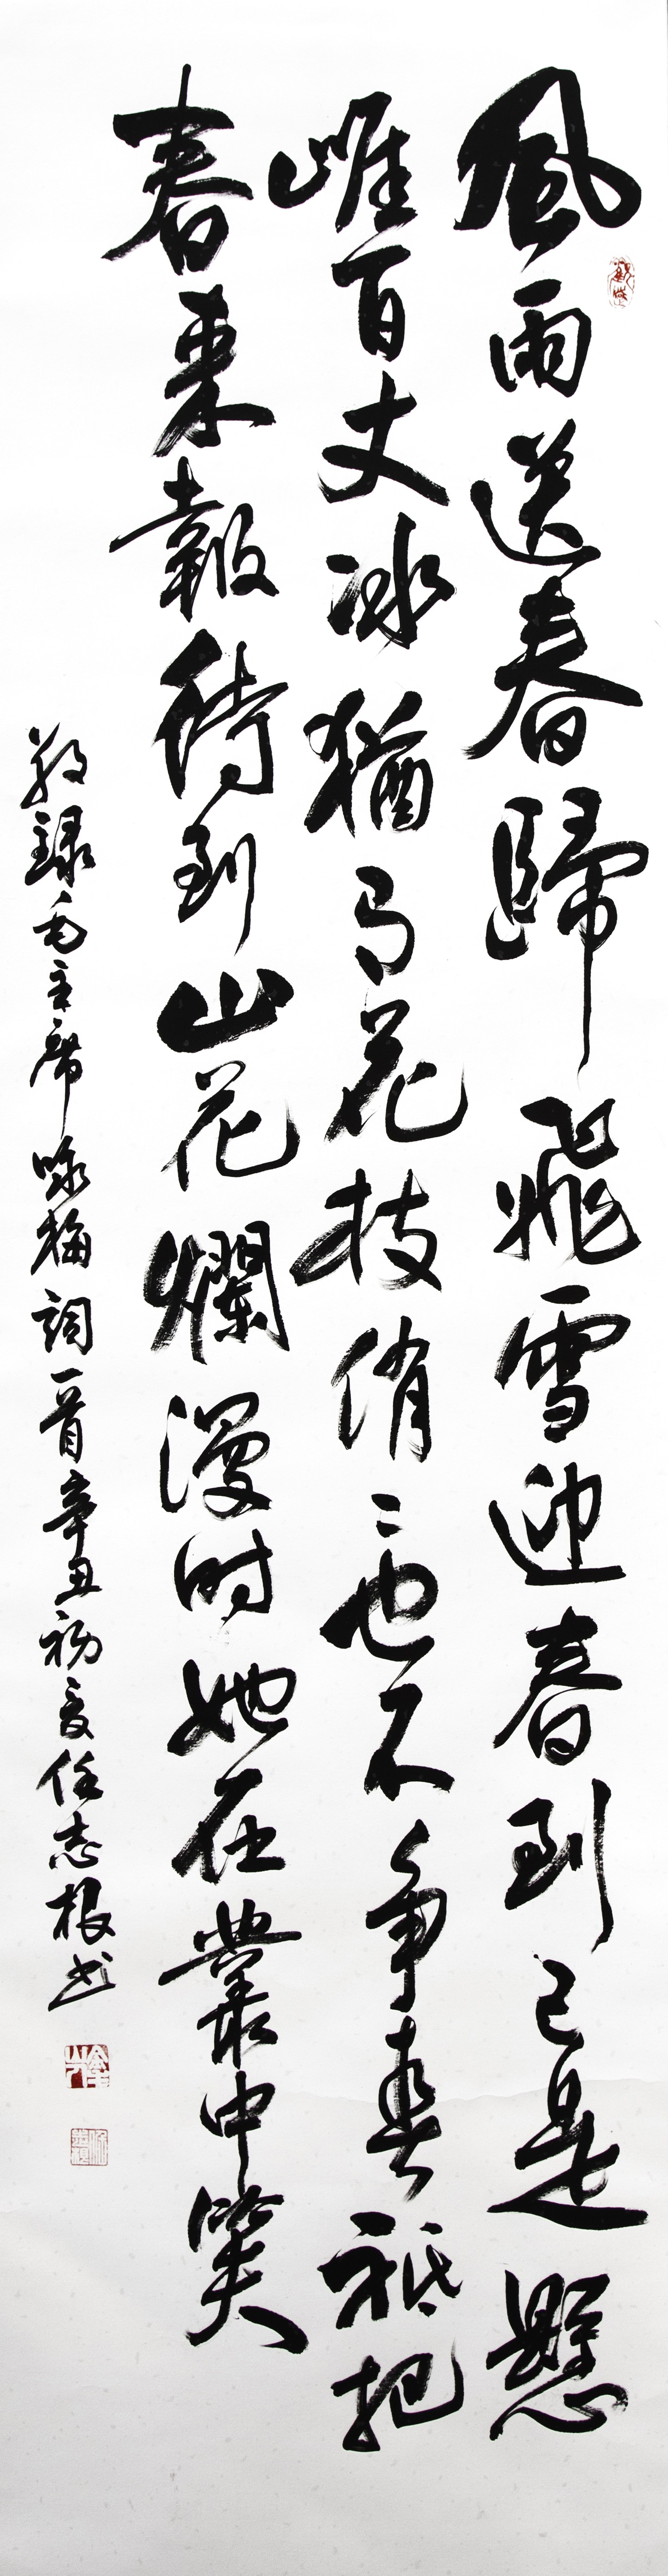 風雨送春歸飛雪迎春到已是懸
崕百丈冰猶有花枝俏〻也不争春祗把
春来報待到山花爛漫时她在叢中笑
敬録毛主席咏梅詞一首辛丑初夏任志根书